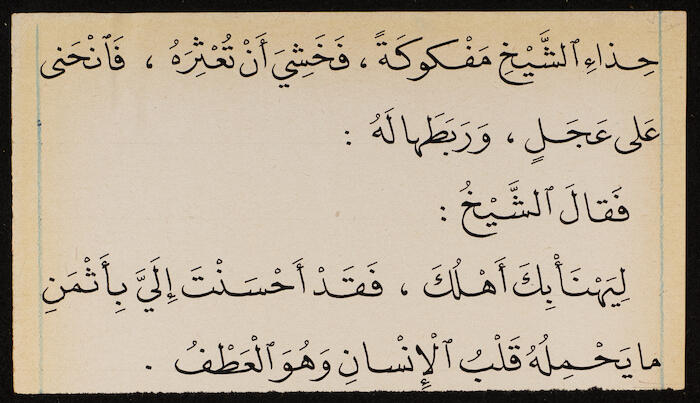 حِذاءِ ٱلشَّيْخِ مَفْكوكَةً ، فَخَشِيَ أَنْ تُعْثِرَهُ ، فَٱنْحَنى
عَلى عَجَلٍ ، وَرَبَطَها لَهُ :
فَقالَ ٱلشَّيْخُ :
لِيَهْنَأْ بِكَ أَهْلُكَ ، فَقَدْ أَحْسَنْتَ إِلَيَّ بِأَثْمَنِ
ما يَحْمِلُهُ قَلْبُ ٱلْإِنْسانِ وَهُوَ ٱلْعَطْفُ .